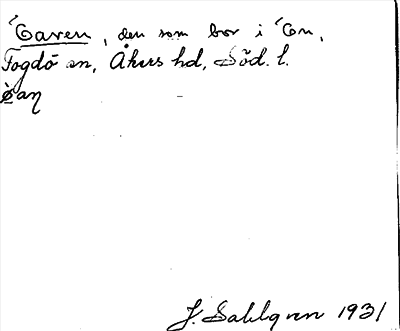 Toaren, den som bor i Ton,
Fogdö sn, Åkers hd, Söd. l.
J. Sahlgren 1931